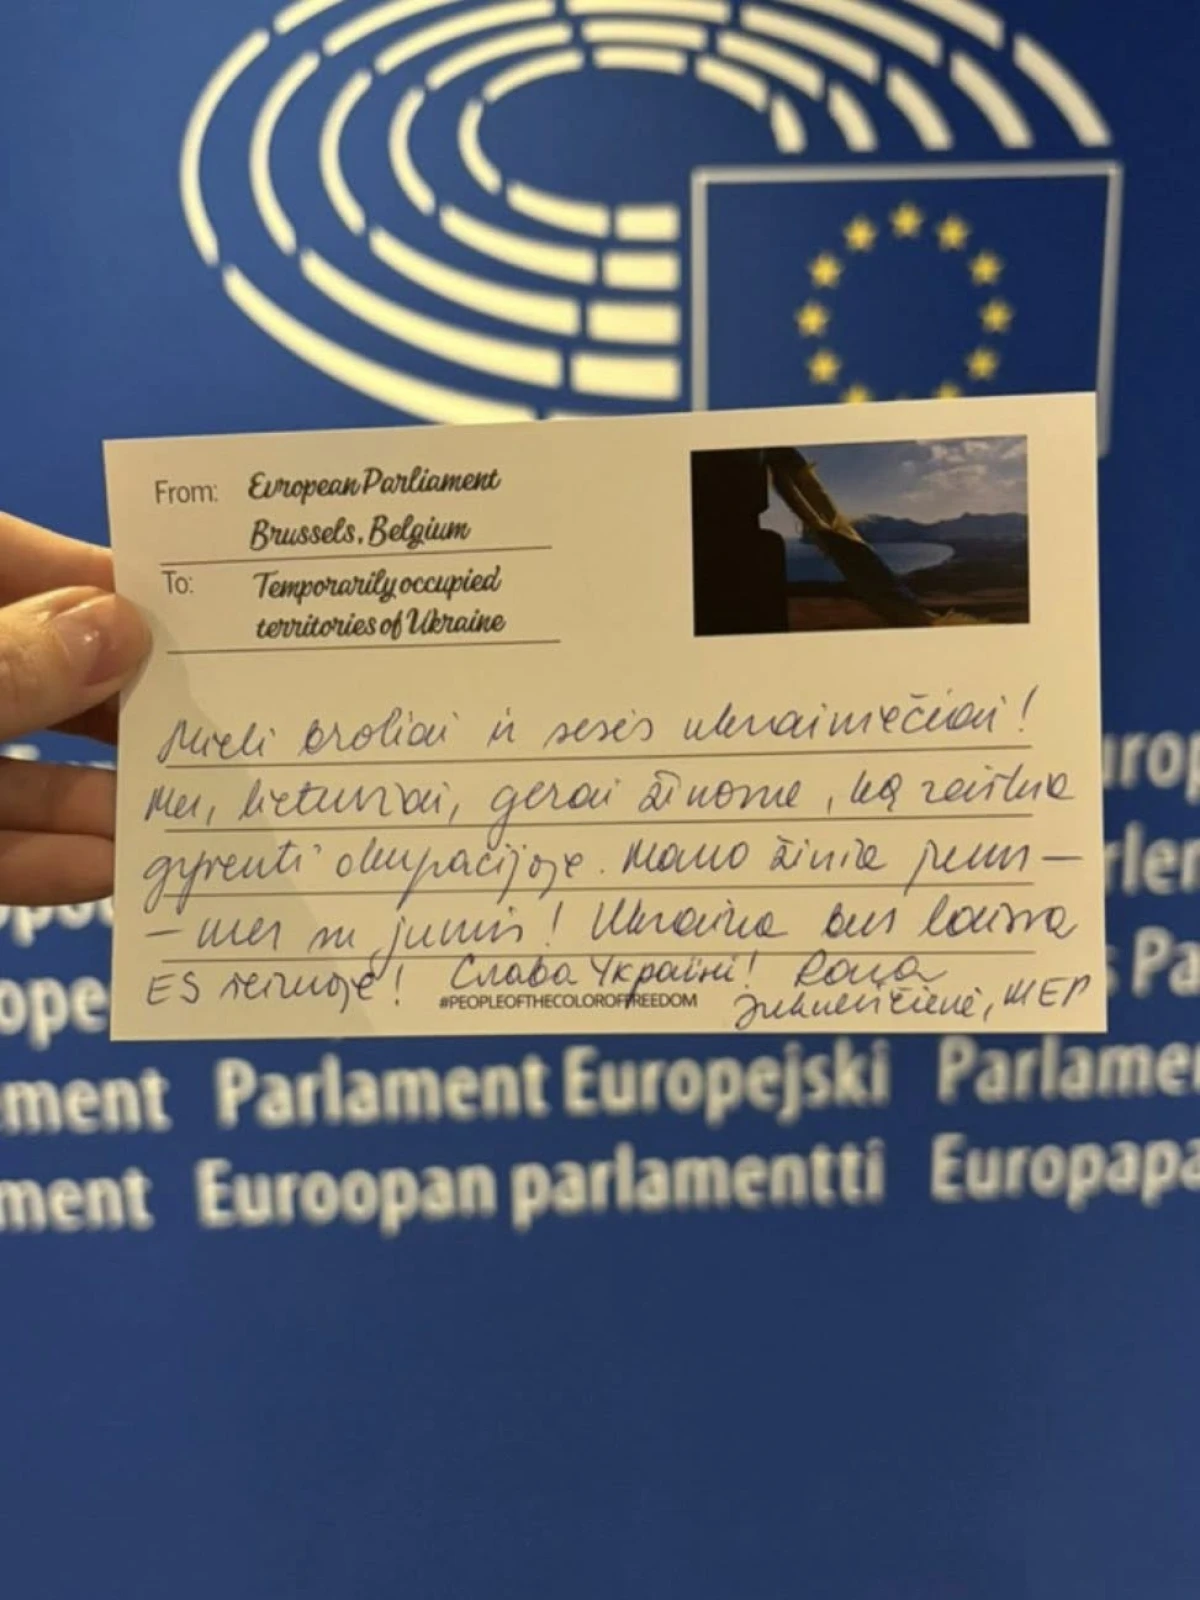 From: European Parliament
Brussels, Belgium
To: Temporarily occupied
territories of Ukraine
Mieli broliai ir sesės ukrainiečiai!
Mes, lietuviai, gerai žinome, ką reiškia
gyventi okupacijoje. Mano žinia jums –
– mes su jumis! Ukraina bus laisva
ES šeimoje! Слава Україні! Rasa
#PEOPLEOFTHECOLOROFFREEDOM
Juknevičienė, MEP
urop
rlen
s Pa
ope
ment Parlament Europejski Parlame
ment Euroopan parlamentti Europapa